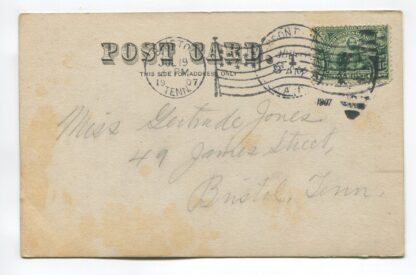 POST CARD.
THIS SIDE FOR ADDRESS ONLY
19
1907
TENN.
1907
Miss Gertrude Jones
49 James Street,
Bristol, Tenn.